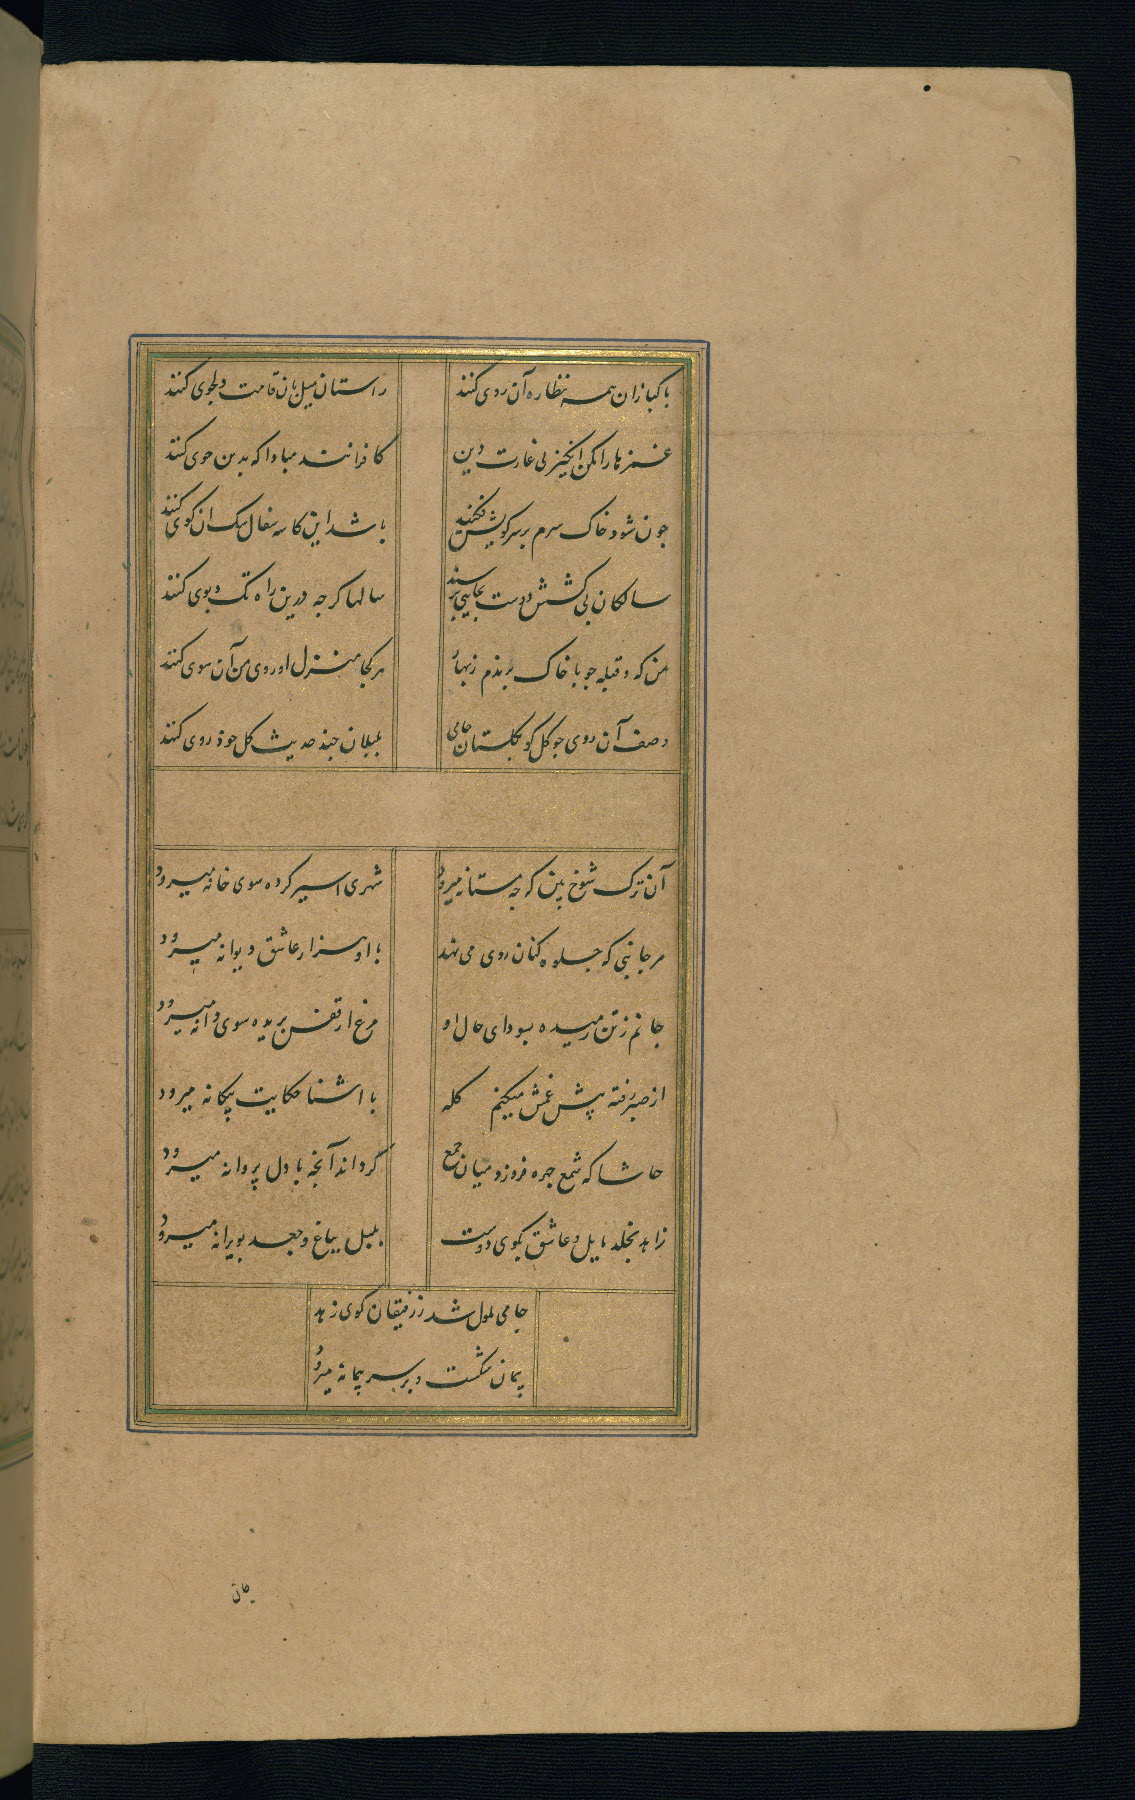 باکبازان همه نظاره آن روی کنند
راستان میل بان قامت دلجوی کنند
غمزها را مکن انکیز پی غارت دین
کافرانند مبادا که بدین خوی کنند
جون شود خاک سرم بر سر کویش فکنید
باشد این کاسه سفال سک ان کوی کنند
سالکان بی کشش دوست بجایی نرسند
سالها کرجه درین راه تک و بوی کنند
من که و قبله جو با خاک برندم زنهار
هر کجا منزل او روی من آن سوی کنند
وصف آن روی جو کل کو بکلستان جامی
بلبلان جند حدیث کل خودروی کنند
آن ترک شوخ بین که جه مستانه میرود
شهری اسیر کرده سوی خانه میرود
هر جانبی که جلوه کنان روی می نهد
با او هزار عاشق دیوانه میرود
جانم ز تن رمیده بسودای خال او
مرغ از قفس بریده سوی دانه میرود
از صبر رفته پیش غمش میکنم کله
با اشنا حکایت بیکانه میرود
حاشا که شمع جهره فروزد میان جمع
کر داند آنجه با دل پروانه میرود
زاهد بخلد مایل و عاشق بکوی دوست
بلبل بباغ و جغد بویرانه میرود
جامی ملول شد ز رفیقان کوی زهد
پیمان شکست و بر سر پیمانه میرود